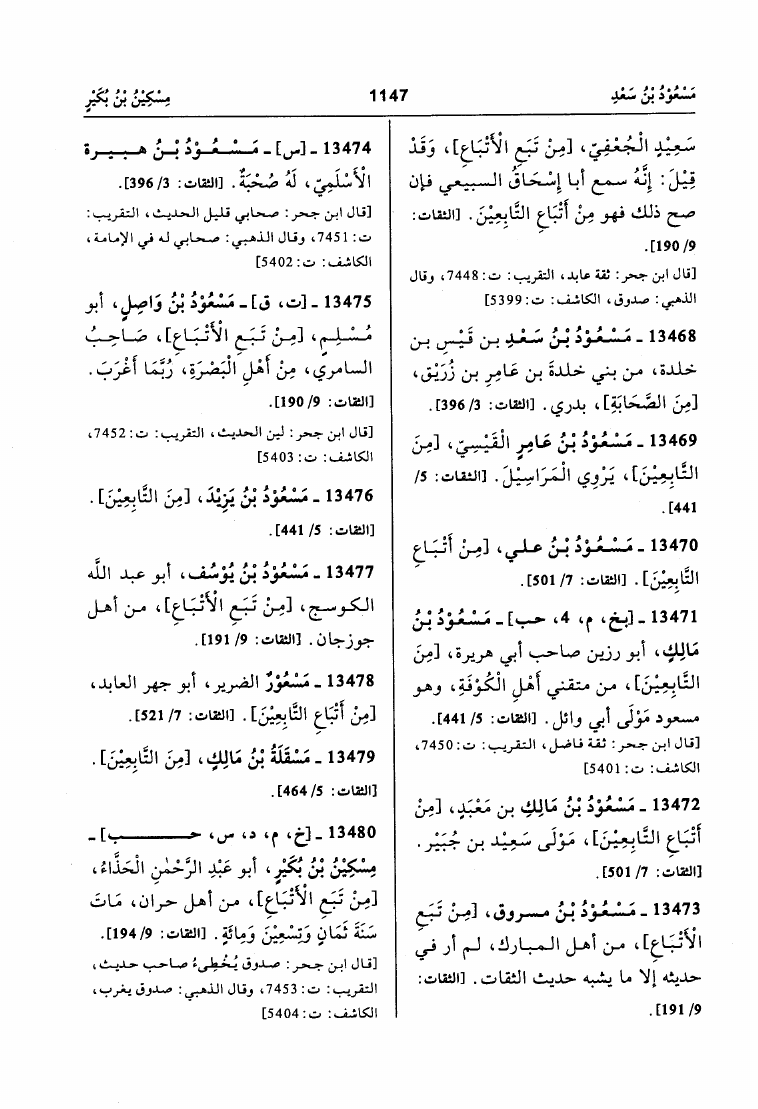 مَسْعُوْدُ بْنُ سَعْدٍ
1147
مِسْكِيْنُ بْنُ بُكَيْرٍ
سَعِيْدٍ الْجُعْفِيّ، [مِنْ تَبَعِ الْأَتْبَاعِ]، وَقَدْ
قِيْلَ: إِنَّهُ سمع أبا إِسْحَاقُ السبيعي فإن
صح ذلك فهو مِنْ أَتْبَاعِ التَّابِعِيْنَ. [الثقات:
9/ 190].
[قال ابن حجر: ثقة عابد، التقريب: ت: 7448، وقال
الذهبي: صدوق، الكاشف: ت: 5399]
13468 ـ مَسْعُوْدُ بْنُ سَعْدِ بن قَيْسِ بن
خلدة، من بني خلدةَ بن عَامِرِ بن زُرَيْق،
[مِنَ الصَّحَابَةِ]، بدري. [الثقات: 3/ 396].
13469 ـ مَسْعُوْدُ بْنُ عَامِرٍ الْقَيْسِيّ، [مِنَ
التَّابِعِيْنَ]، يَرْوِي الْمَرَاسِيْلَ. [الثقات: 5/
441].
13470 ـ مَسْعُوْدُ بْنُ علي، [مِنْ أَتْبَاعِ
التَّابِعِيْنَ]. [الثقات: 7/ 501].
13471 ـ [بخ، م، 4، حب] ـ مَسْعُوْدُ بْنُ
مَالِكٍ، أبو رزين صاحب أبي هريرة، [مِنَ
التَّابِعِيْنَ]، من متقني أَهْلِ الْكُوْفَةِ، وهو
مسعود مَوْلَى أبي وائل. [الثقات: 5/ 441].
[قال ابن حجر: ثقة فاضل، التقريب: ت: 7450،
الكاشف: ت: 5401]
13472 ـ مَسْعُوْدُ بْنُ مَالِكِ بن مَعْبَدٍ، [مِنْ
أَتْبَاعِ التَّابِعِيْنَ]، مَوْلَى سَعِيْدِ بن جُبَيْرٍ.
[الثقات: 7/ 501].
13473 ـ مَسْعُوْدُ بْنُ مسروق، [مِنْ تَبَعِ
الْأَتْبَاعِ]، من أهل المبارك، لم أر في
حديثه إلا ما يشبه حديث الثقات. [الثقات:
9/ 191].
13474 ـ [س] ـ مَسْعُوْدُ بْنُ هبيرة
الْأَسْلَمِيّ، لَهُ صُحْبَةٌ. [الثقات: 3/ 396].
[قال ابن حجر: صحابي قليل الحديث، التقريب:
ت: 7451، وقال الذهبي: صحابي له في الإمامة،
الكاشف: ت: 5402]
13475 ـ [ت، ق] ـ مَسْعُوْدُ بْنُ وَاصِلٍ، أبو
مُسْلِمٍ، [مِنْ تَبَعِ الْأَتْبَاعِ]، صَاحِبُ
السامري، مِنْ أَهْلِ الْبَصْرَةِ، رُبَّمَا أَغْرَبَ.
[الثقات: 9/ 190].
[قال ابن حجر: لين الحديث، التقريب: ت: 7452،
الكاشف: ت: 5403]
13476 ـ مَسْعُوْدُ بْنُ يَزِيْدَ، [مِنَ التَّابِعِيْنَ].
[الثقات: 5/ 441].
13477 ـ مَسْعُوْدُ بْنُ يُوْسُف، أبو عبد اللَّه
الكوسج، [مِنْ تَبَعِ الْأَتْبَاعِ]، من أهل
جوزجان. [الثقات: 9/ 191].
13478 ـ مَسْعُوْرٌ الضرير، أبو جهر العابد،
[مِنْ أَتْبَاعِ التَّابِعِيْنَ]. [الثقات: 7/ 521].
13479 ـ مَسْقَلَةُ بْنُ مَالِكٍ، [مِنَ التَّابِعِيْنَ].
[الثقات: 5/ 464].
13480 ـ [خ، م، د، س، حـــب] ـ
مِسْكِيْنُ بْنُ بُكَيْرٍ، أبو عَبْدِ الرَّحْمٰنِ الْحَذَّاءُ،
[مِنْ تَبَعِ الْأَتْبَاعِ]، من أهل حران، مَاتَ
سَنَةَ ثَمَانٍ وَتِسْعِيْنَ وَمِائَةٍ. [الثقات: 9/ 194].
[قال ابن حجر: صدوق يُخْطِىءُ صاحب حديث،
التقريب: ت: 7453، وقال الذهبي: صدوق يغرب،
الكاشف: ت: 5404]